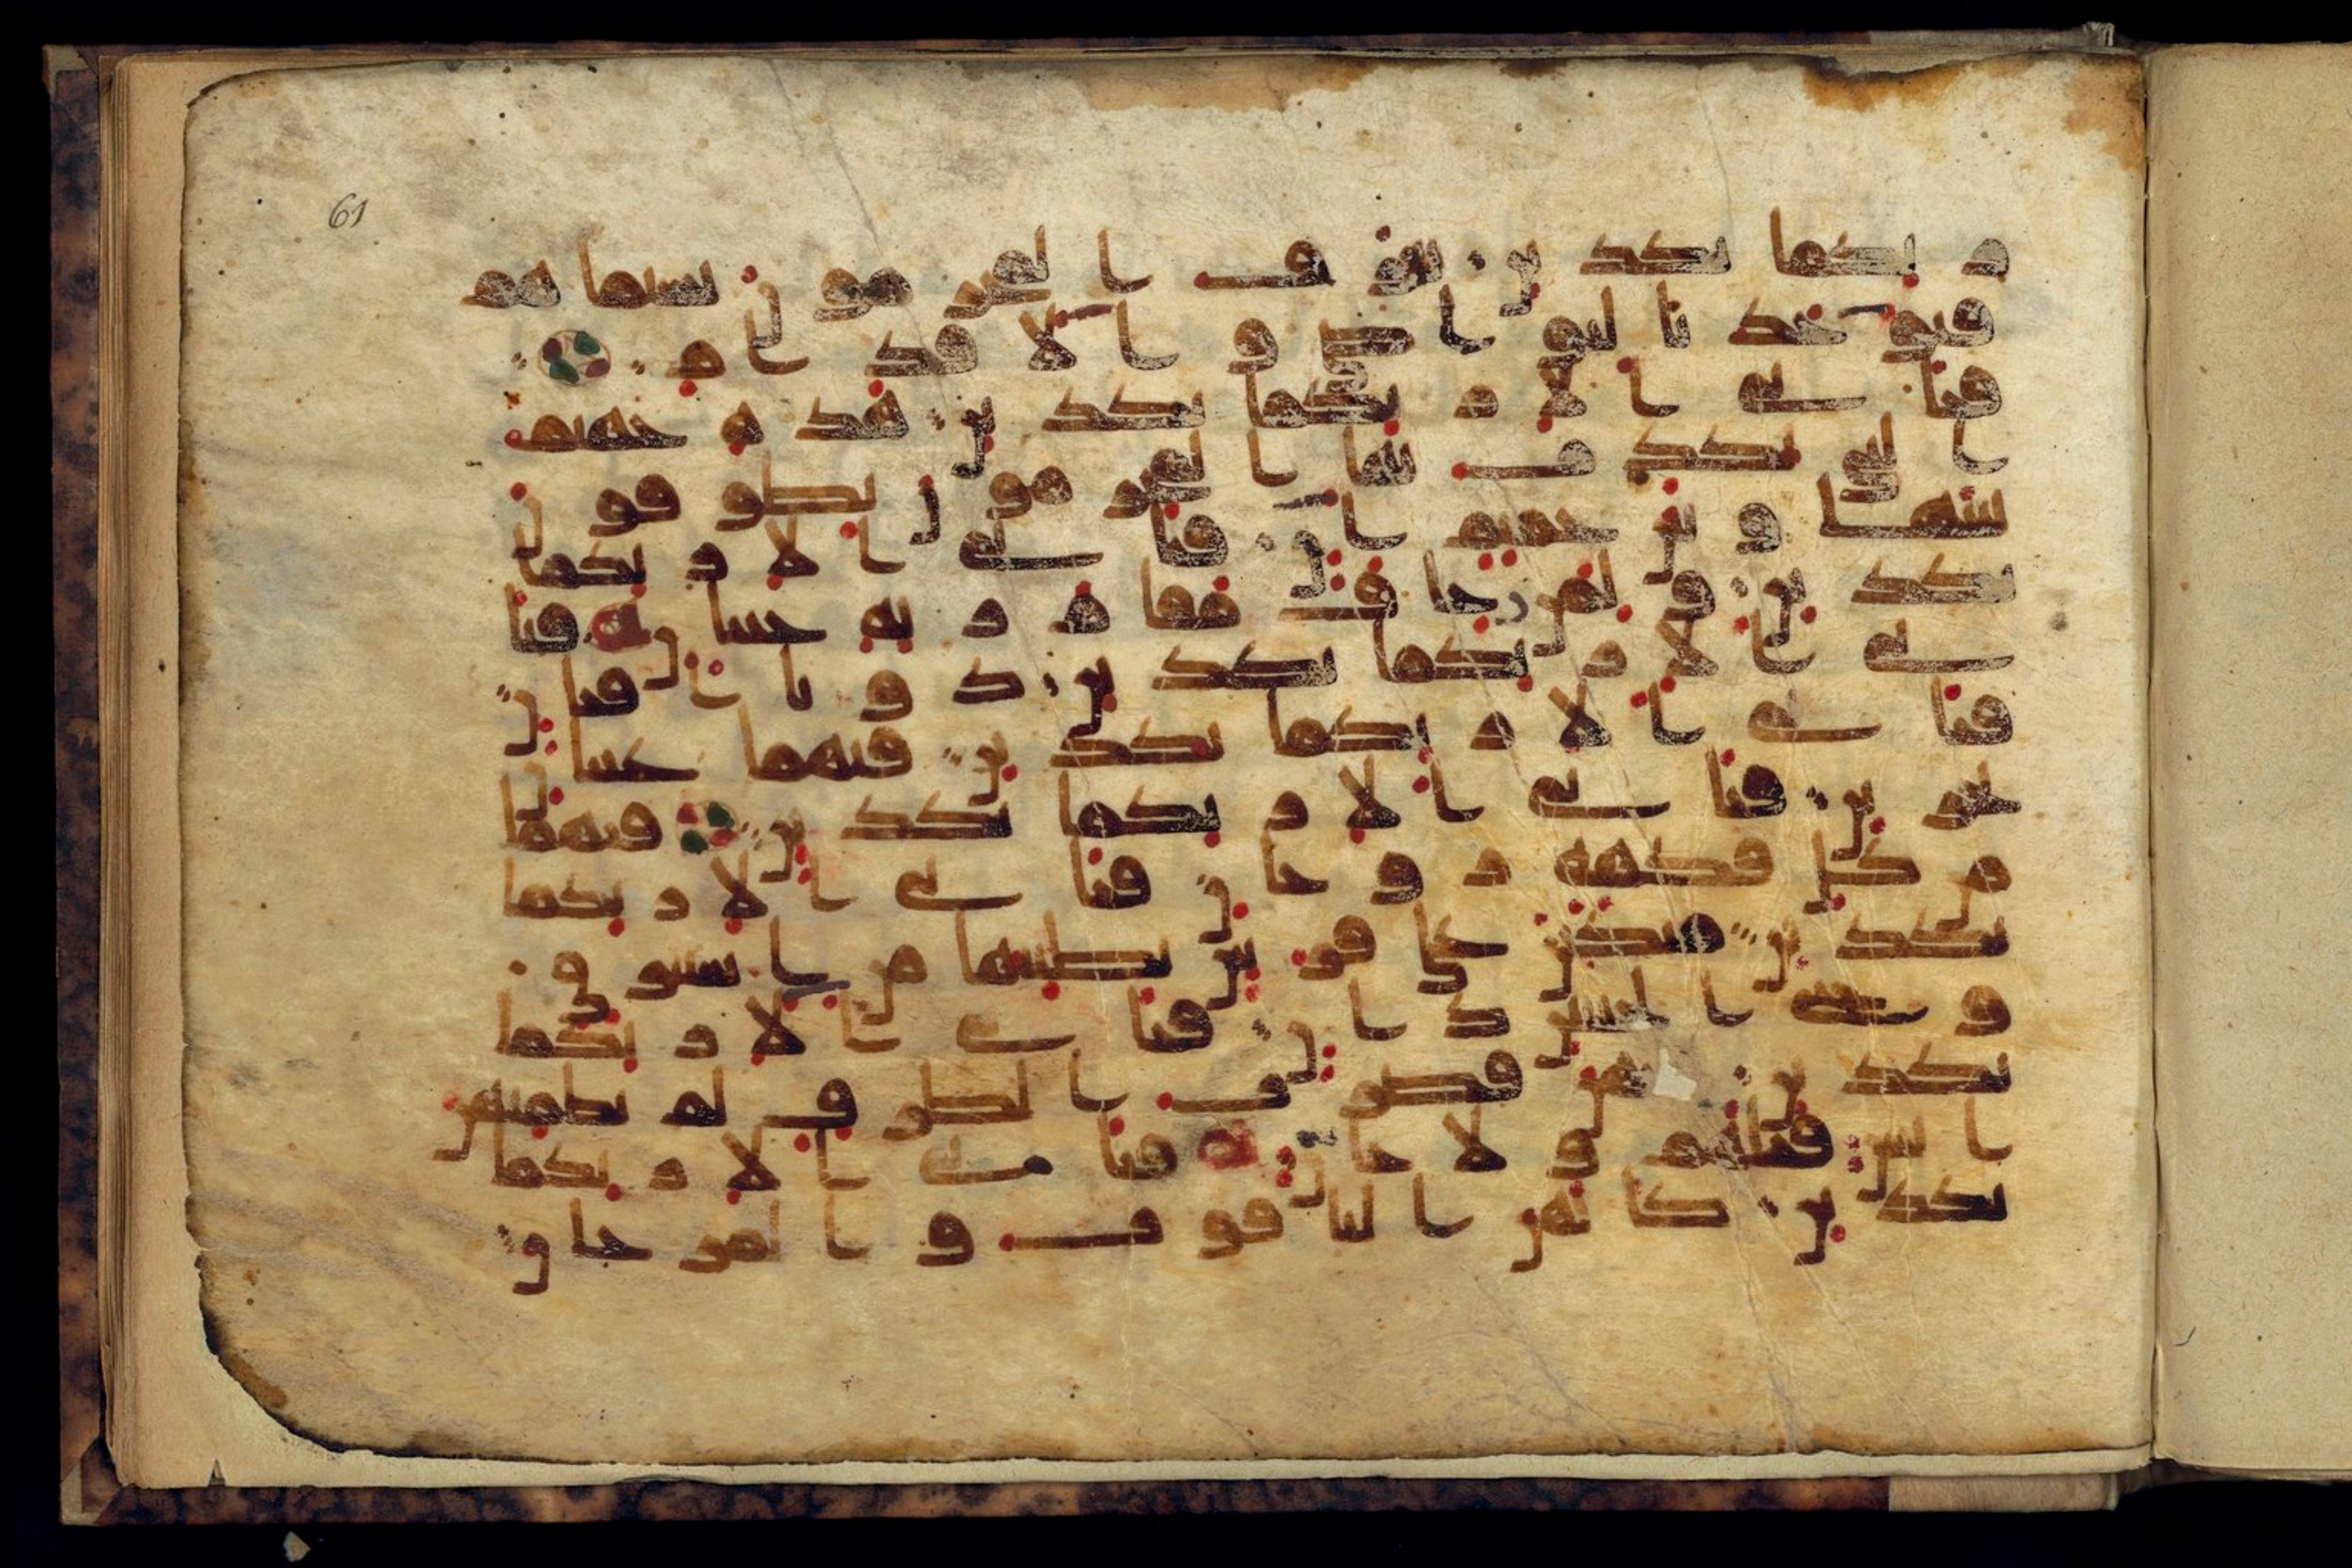 61
ربكما تكذبن يعرف المجرمون بسيماهم
فيوخذ بالنواصي والاقدام
فباي الا ربكما تكذبن هذه جهنم
التي يكذب بها المجرمون يطوفون
بينها وبين حميم ان فباي الا ربكما
تكذبن ولمن خاف مقام ربه جنتان فبا
ي الا ربكما تكذبن ذواتا افنان
فباي الا ربكما تكذبن فيهما عينان
تجرين فباي الا ربكما تكذبن فيهما
من كل فكهة زوجان فباي الا ربكما
تكذبن متكين على فرش بطينها من استبرق
وجنى الجنتين دان فباي الا ربكما
تكذبن فيهن قصرت الطرف لم يطمثهن
انس قبلهم ولا جان فباي الا ربكما
تكذبن كانهن الياقوت والمرجان